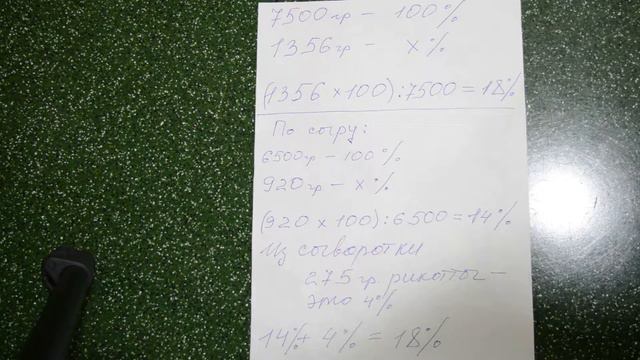 7500гр - 100%
1356гр - х%
(1356 х 100) : 7500 = 18%
По сыру:
6500гр - 100%
920гр - х%
(920 х 100) : 6500 = 14%
Из сыворотки
275 гр. рикотты -
это 4%
14% + 4% = 18%